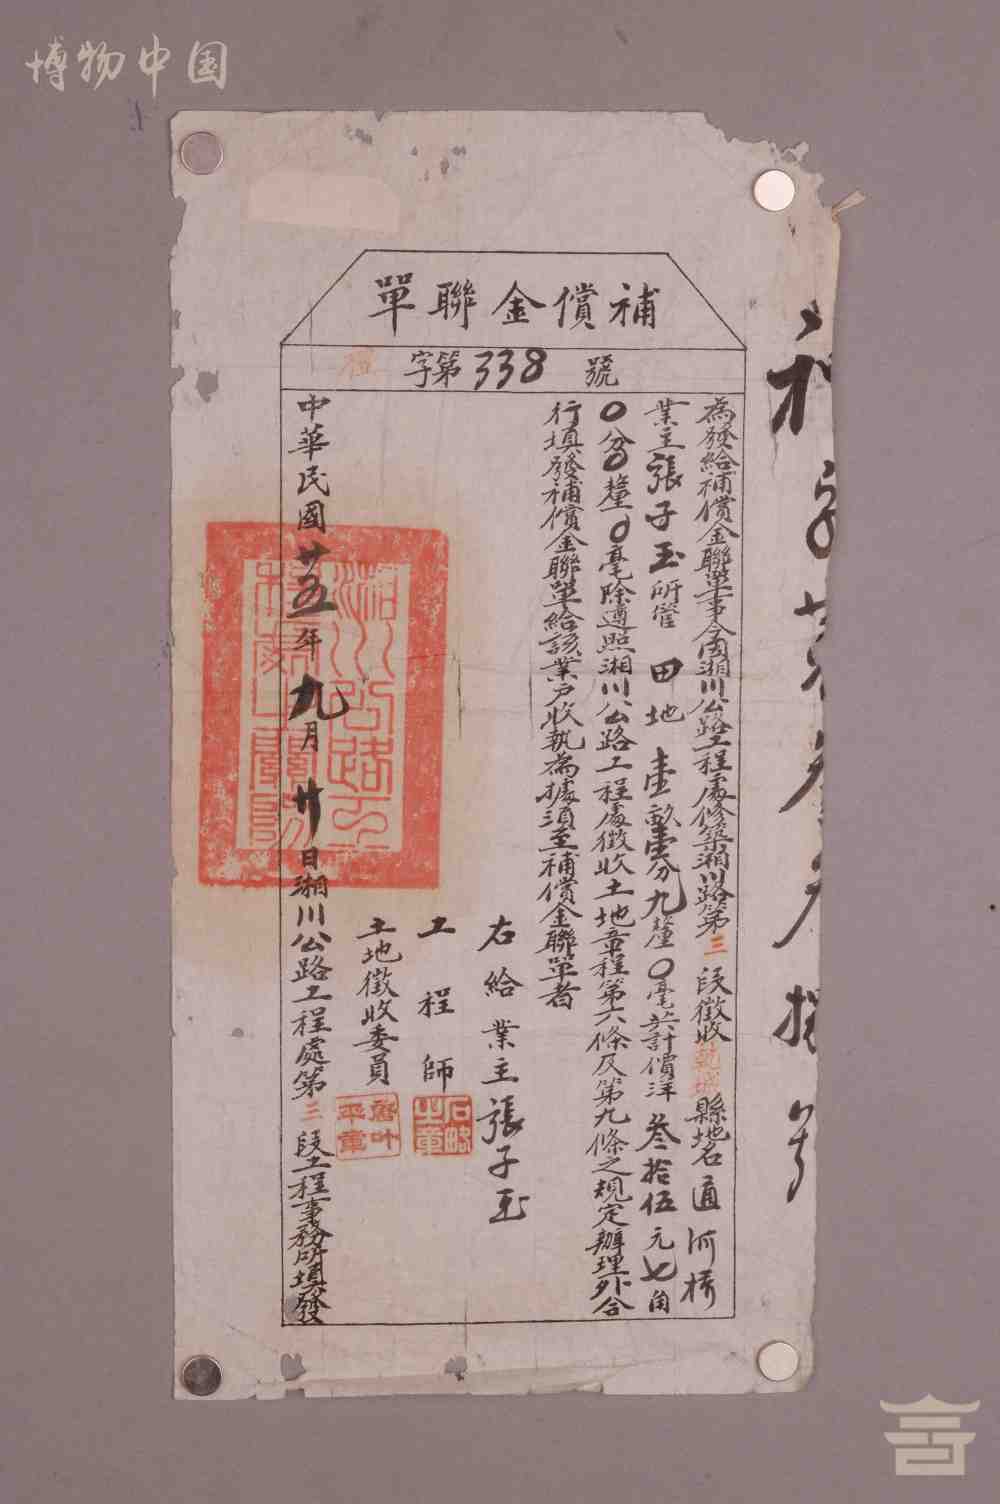 博物中国
補償金聯單
字第338號
為發給補償金聯單事今因湘川公路工程處修築湘川路第三段徵收乾城縣地名通河橋
業主張子玉所管田地壹畝壹分九釐〇毫共計價洋叁拾伍元七角
〇分〇釐〇毫除遵照湘川公路工程處徵收土地章程第六條及第九條之規定辦理外合
行填發補償金聯單給該業戶收執為據須至補償金聯單者
右給業主張子玉
工程師
石略之章
土地徵收委員
中華民國廿五年九月廿日湘川公路工程處第三段工程事務所填發